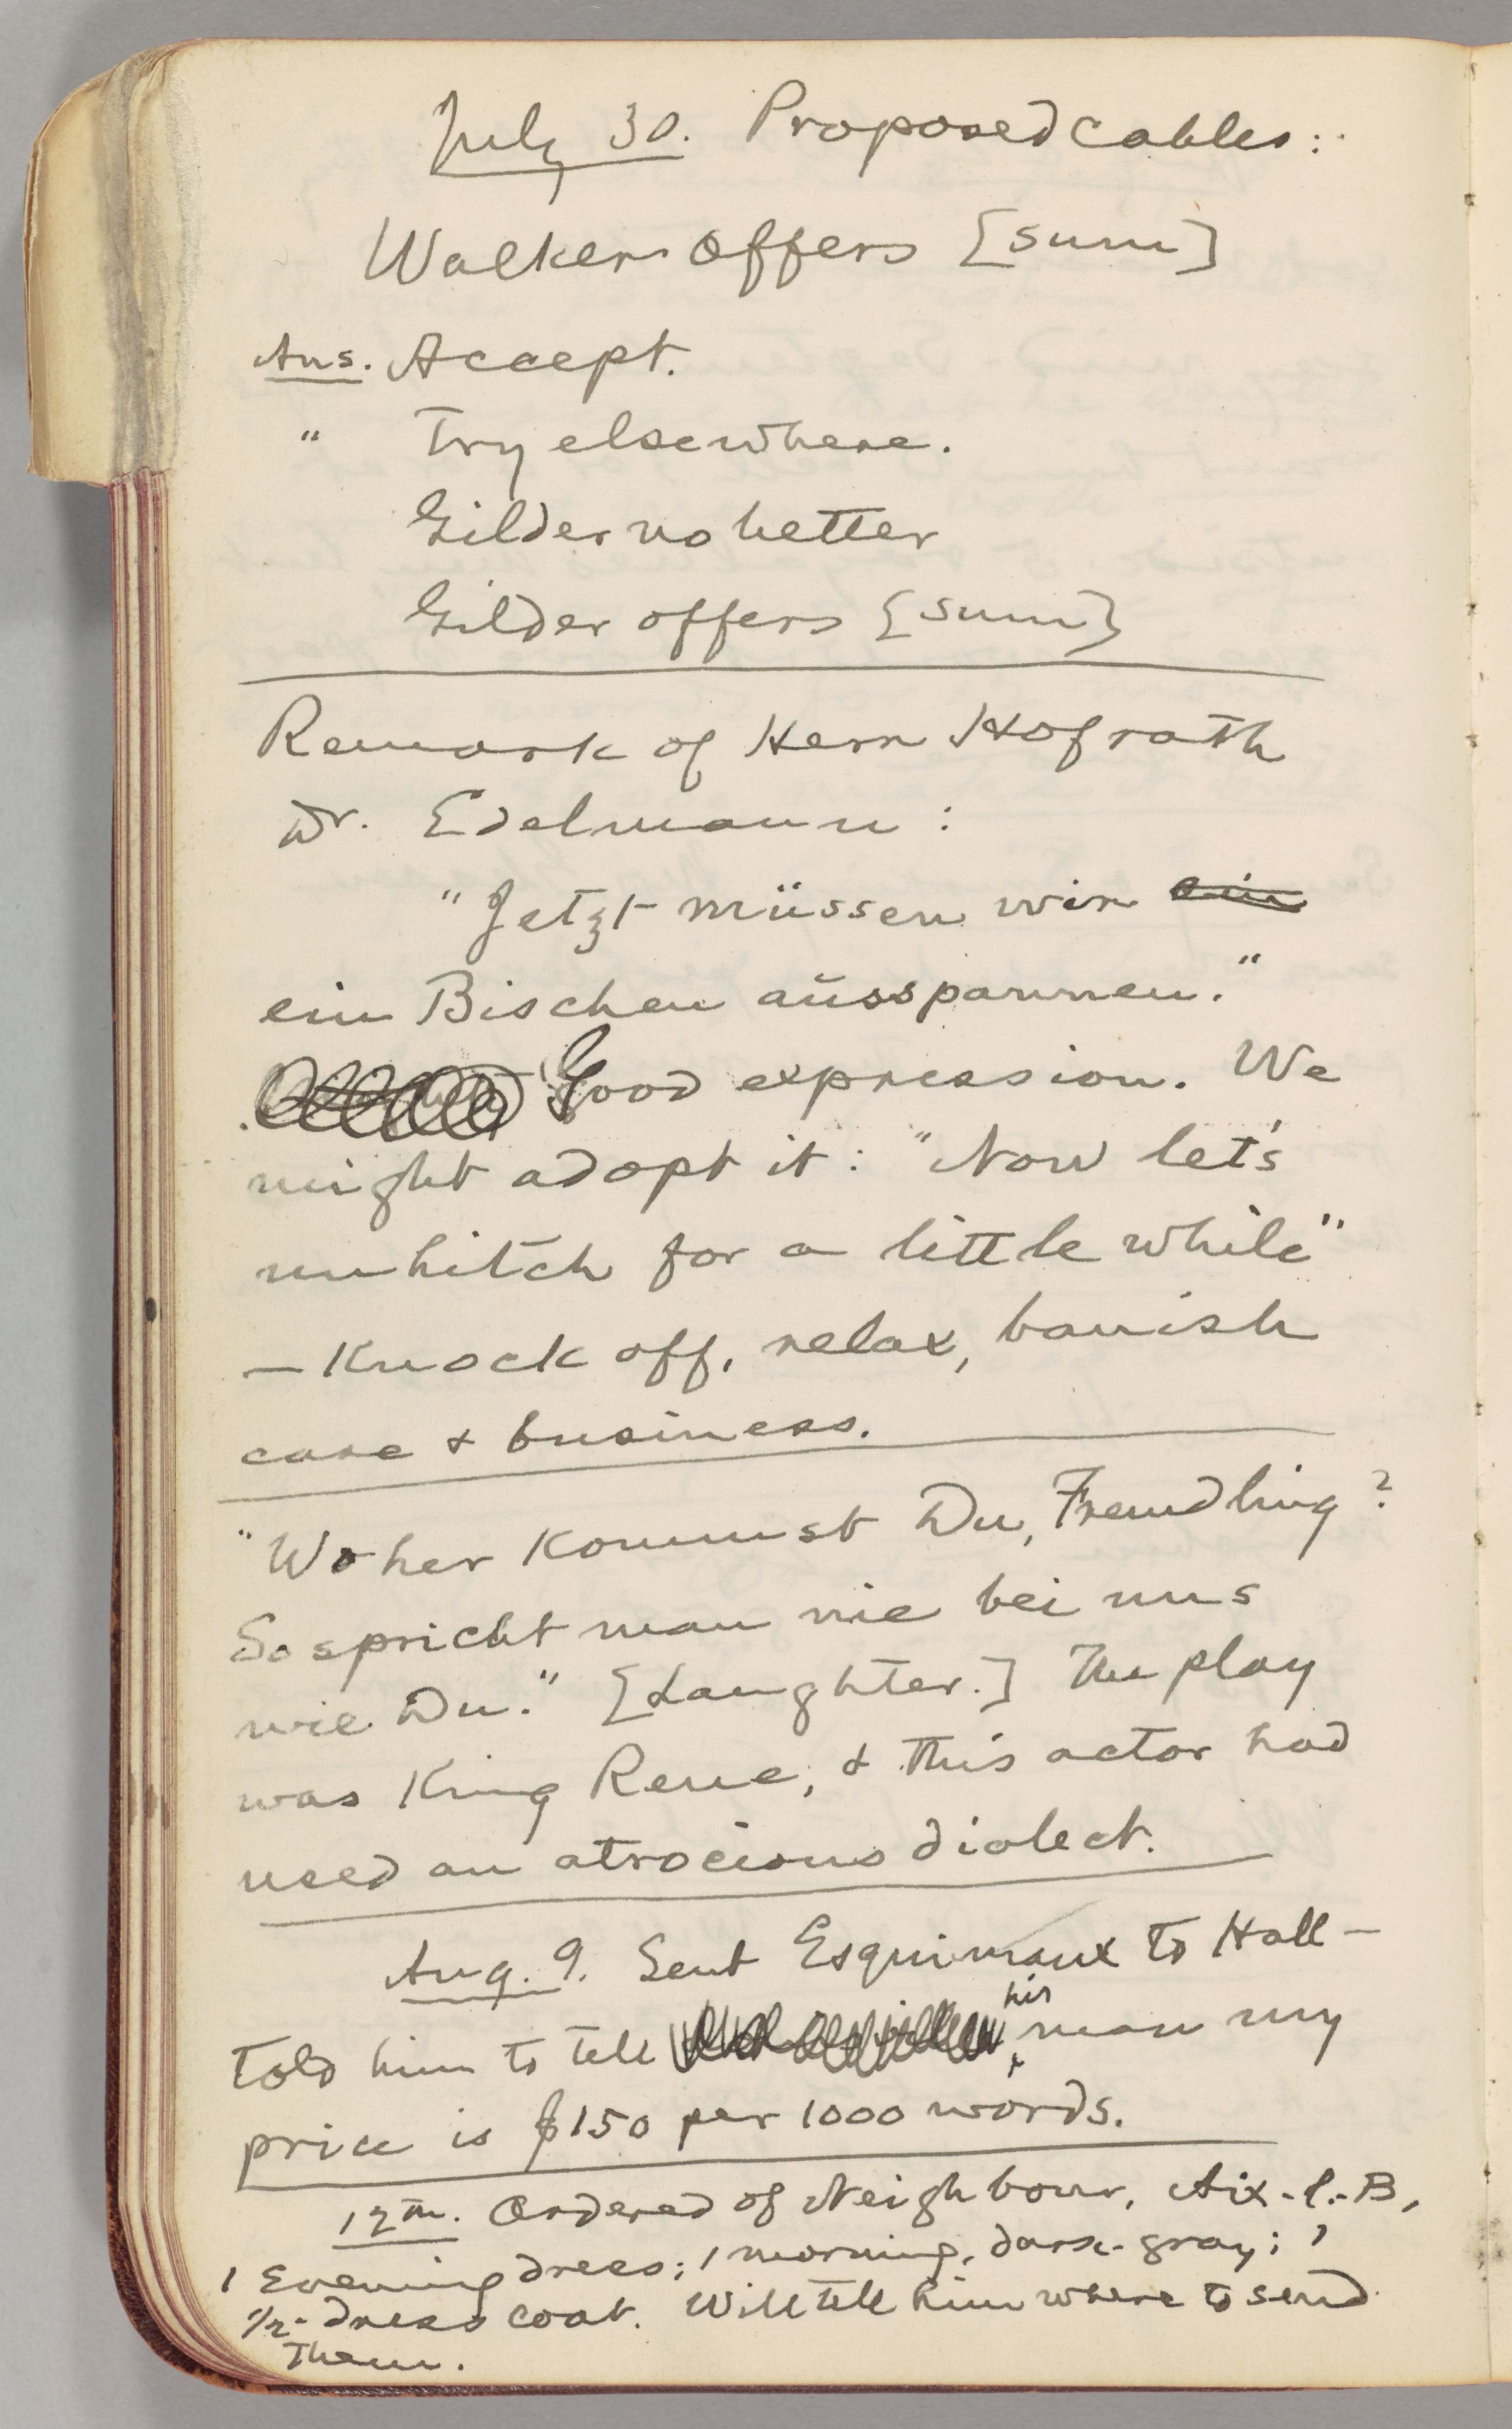 July 30. Proposed Cables:
Walker offers [sum]
Ans. Accept.
" Try elsewhere.
Gilder no better
Gilder offers [sum]
Remark of Herr Hofrath
Dr. Edelmann:
"Jetzt müssen wir ein
ein Bischen aŭsspannen."
Good expression. We
might adopt it: "Now let's
unhitch for a little while"
—Knock off, relax, banish
care & business.
"Woher kommst Du, Fremdling?
So spricht man nie bei uns
wie Du." [Laughter.] The play
was King Rene, & this actor had
used an atrocious dialect.
Aug. 9. Sent Esquimaux to Hall—
told him to tell his man my
price is $150 per 1000 words.
12th. Ordered of Neighbour, Aix-l.-B,
1 Evening dress; 1 morning, dark-gray; 1
1/2-dress coat. Will tell him where to send
them.